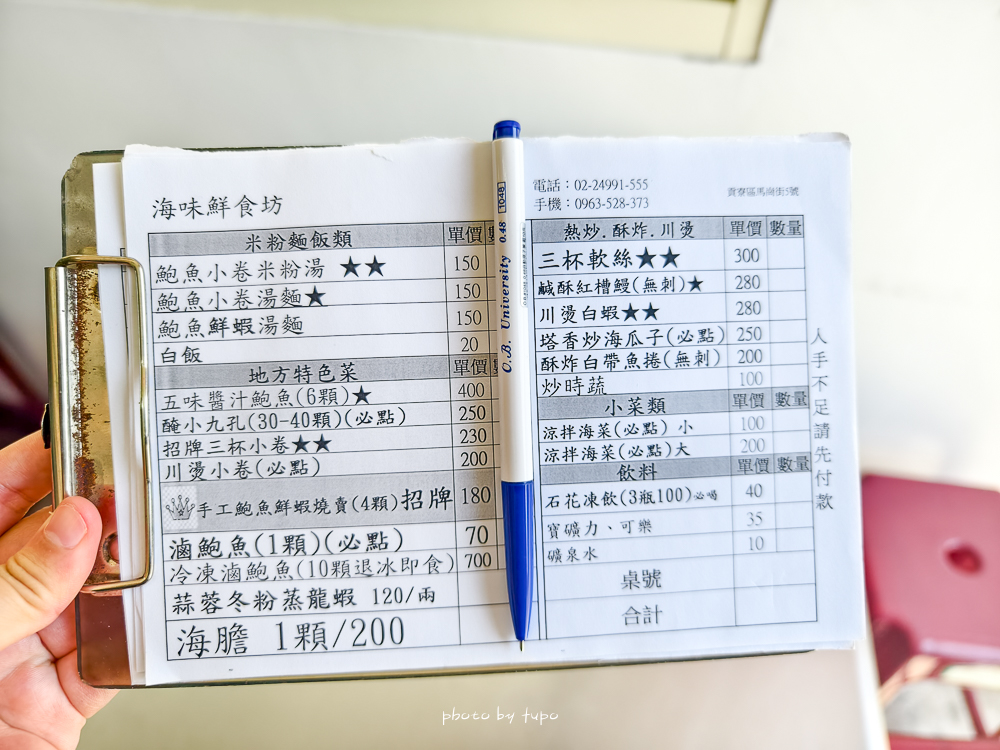 海味鮮食坊
米粉麵飯類 單價
鮑魚小卷米粉湯 ★★ 150
鮑魚小卷湯麵★ 150
鮑魚鮮蝦湯麵 150
白飯 20
地方特色菜 單價
五味醬汁鮑魚(6顆)★ 400
醃小九孔(30-40顆)(必點) 250
招牌三杯小卷★★ 230
川燙小卷(必點) 200
手工鮑魚鮮蝦燒賣(4顆)招牌 180
滷鮑魚(1顆)(必點) 70
冷凍滷鮑魚(10顆退冰即食) 700
蒜蓉冬粉蒸龍蝦 120/兩
海膽 1顆/200
O.B. University 0.48 1048
電話：02-24991-555
手機：0963-528-373
貢寮區馬崗街5號
熱炒.酥炸.川燙 單價 數量
三杯軟絲★★ 300
鹹酥紅槽鰻(無刺)★ 280
川燙白蝦★★ 280
塔香炒海瓜子(必點) 250
酥炸白帶魚捲(無刺) 200
炒時蔬 100
小菜類 單價 數量
涼拌海菜(必點) 小 100
涼拌海菜(必點)大 200
飲料 單價 數量
石花凍飲(3瓶100)必喝 40
寶礦力、可樂 35
礦泉水 10
桌號
合計
人手不足請先付款
photo by tupo